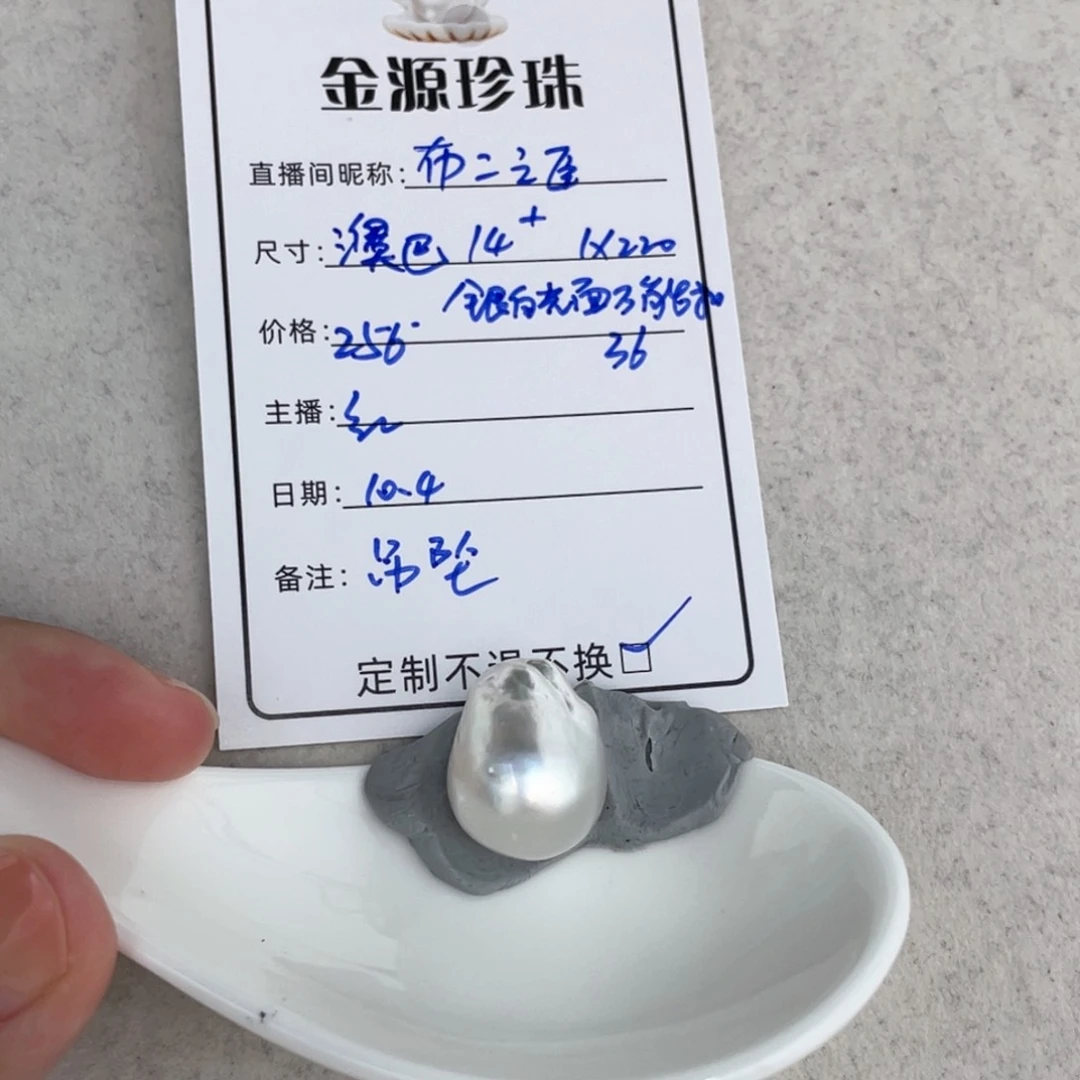 金源珍珠
直播间昵称: 布二之
尺寸: 澳巴 14+ 1X220
全银白光面
价格: 256 36
主播: 红
日期: 10.4
备注: 吊坠
定制不退不换